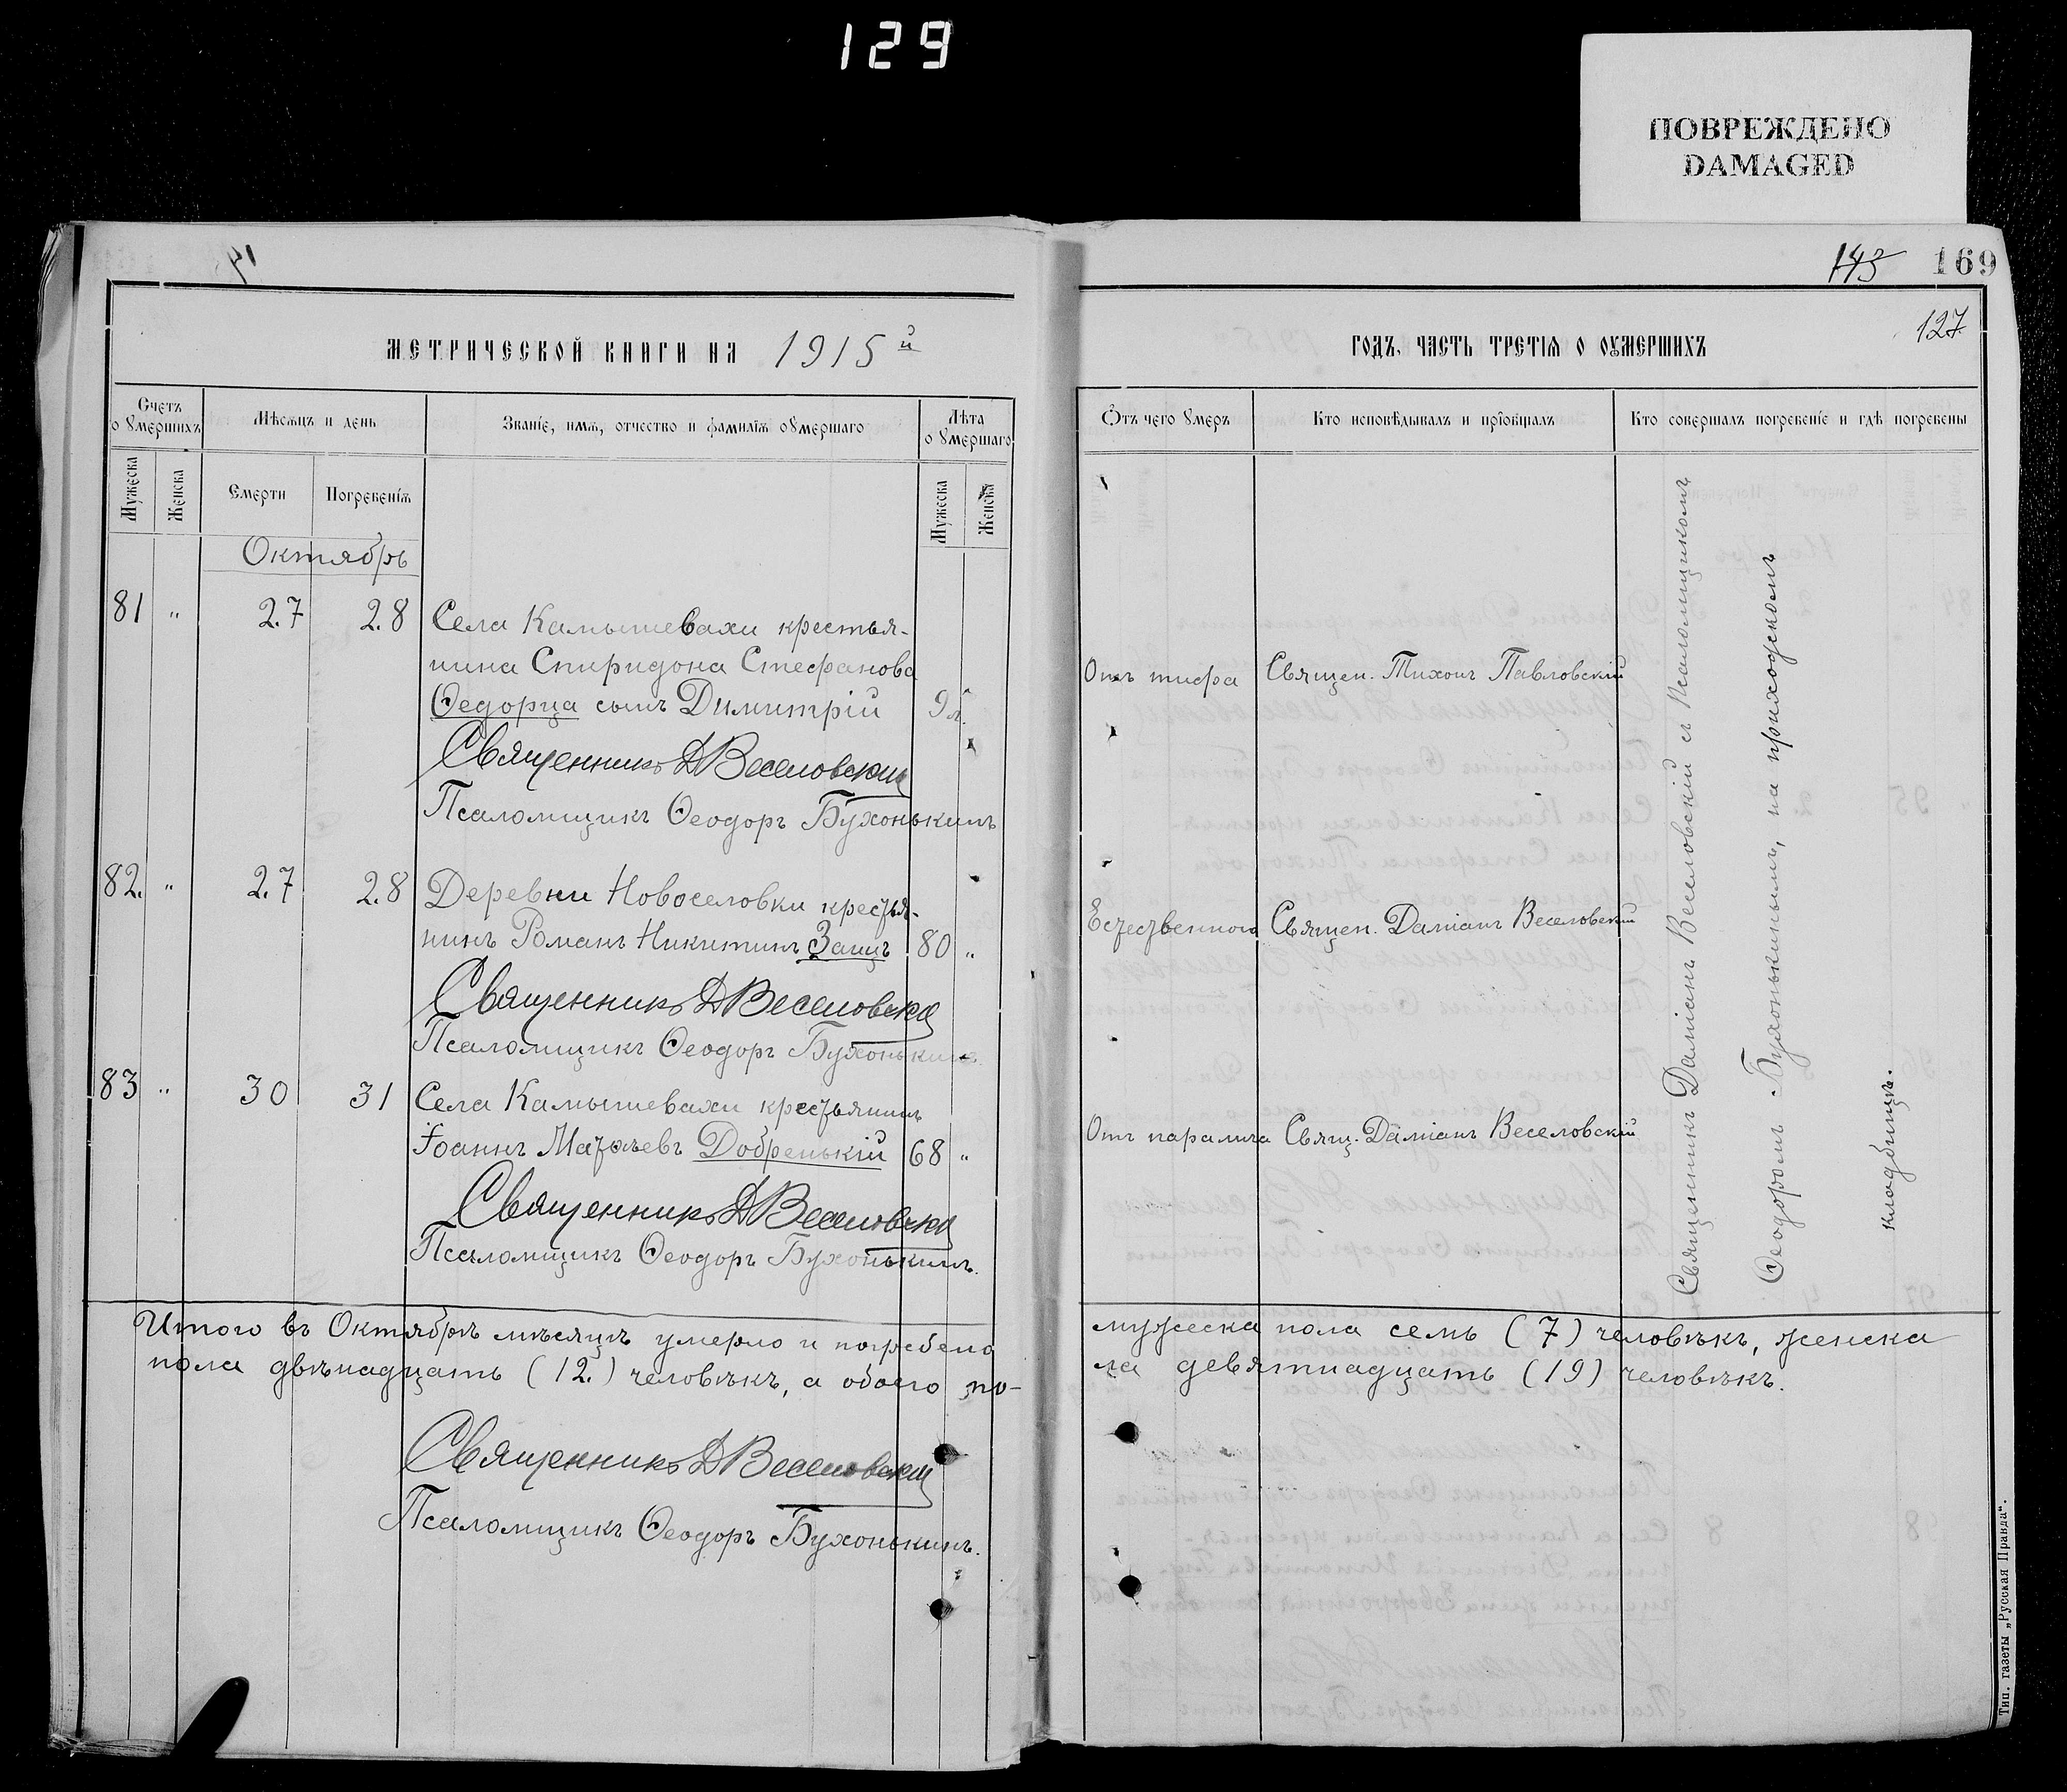 129
ПОВРЕЖДЕНО
DAMAGED
143 169
127
МЕТРИЧЕСКОЙ КНИГИ НА 1915й
ГОДЪ, ЧАСТЬ ТРЕТІѦ О ОУМЕРШИХЪ
Счетъ оумершихъ
Мѣсѧцъ и день
Званіе, имѧ, отчество и фамиліѧ оумершаго
Лѣта оумершаго
Ѿтъ чего умеръ
Кто исповѣдывалъ и пріобщалъ
Кто совершалъ погребеніе и гдѣ погребены
Мужеска
Женска
Смерти
Погребеніѧ
Мужеска
Женска
Октябрь
81 " 27 28 Села Камышевахи крестья-
нина Спиридона Стефанова
Ѳедорца сынъ Димитрій 9 л.
Отъ тифа Священ. Тихонъ Павловскій
Священникъ Д Веселовскій
Псаломщикъ Ѳеодоръ Бухонькинъ
82. " 27 28 Деревни Новоселовки крестья-
нинъ Романъ Никитинъ Заицъ 80 "
Естественного Священ. Даміанъ Веселовскій
Священникъ Д Веселовскій
Псаломщикъ Ѳеодоръ Бухонькинъ
83 " 30 31 Села Камышевахи крестьянинъ
Іоаннъ Матѳеевъ Добренькій 68 "
Отъ паралича Свящ. Даміанъ Веселовскій
Священникъ Д Веселовскій
Псаломщикъ Ѳеодоръ Бухонькинъ.
Священникъ Даміанъ Веселовскій съ Псаломщикомъ
Ѳеодоромъ Бухонькинымъ, на приходскомъ
кладбищѣ.
Итого въ Октябрѣ мѣсяцѣ умерло и погребено мужеска пола семь (7) человѣкъ, женска
пола двѣнадцать (12.) человѣкъ, а обоего по-
ла девятнадцать (19) человѣкъ.
Священникъ Д Веселовскій
Псаломщикъ Ѳеодоръ Бухонькинъ.
Тип. газеты „Русская Правда“.